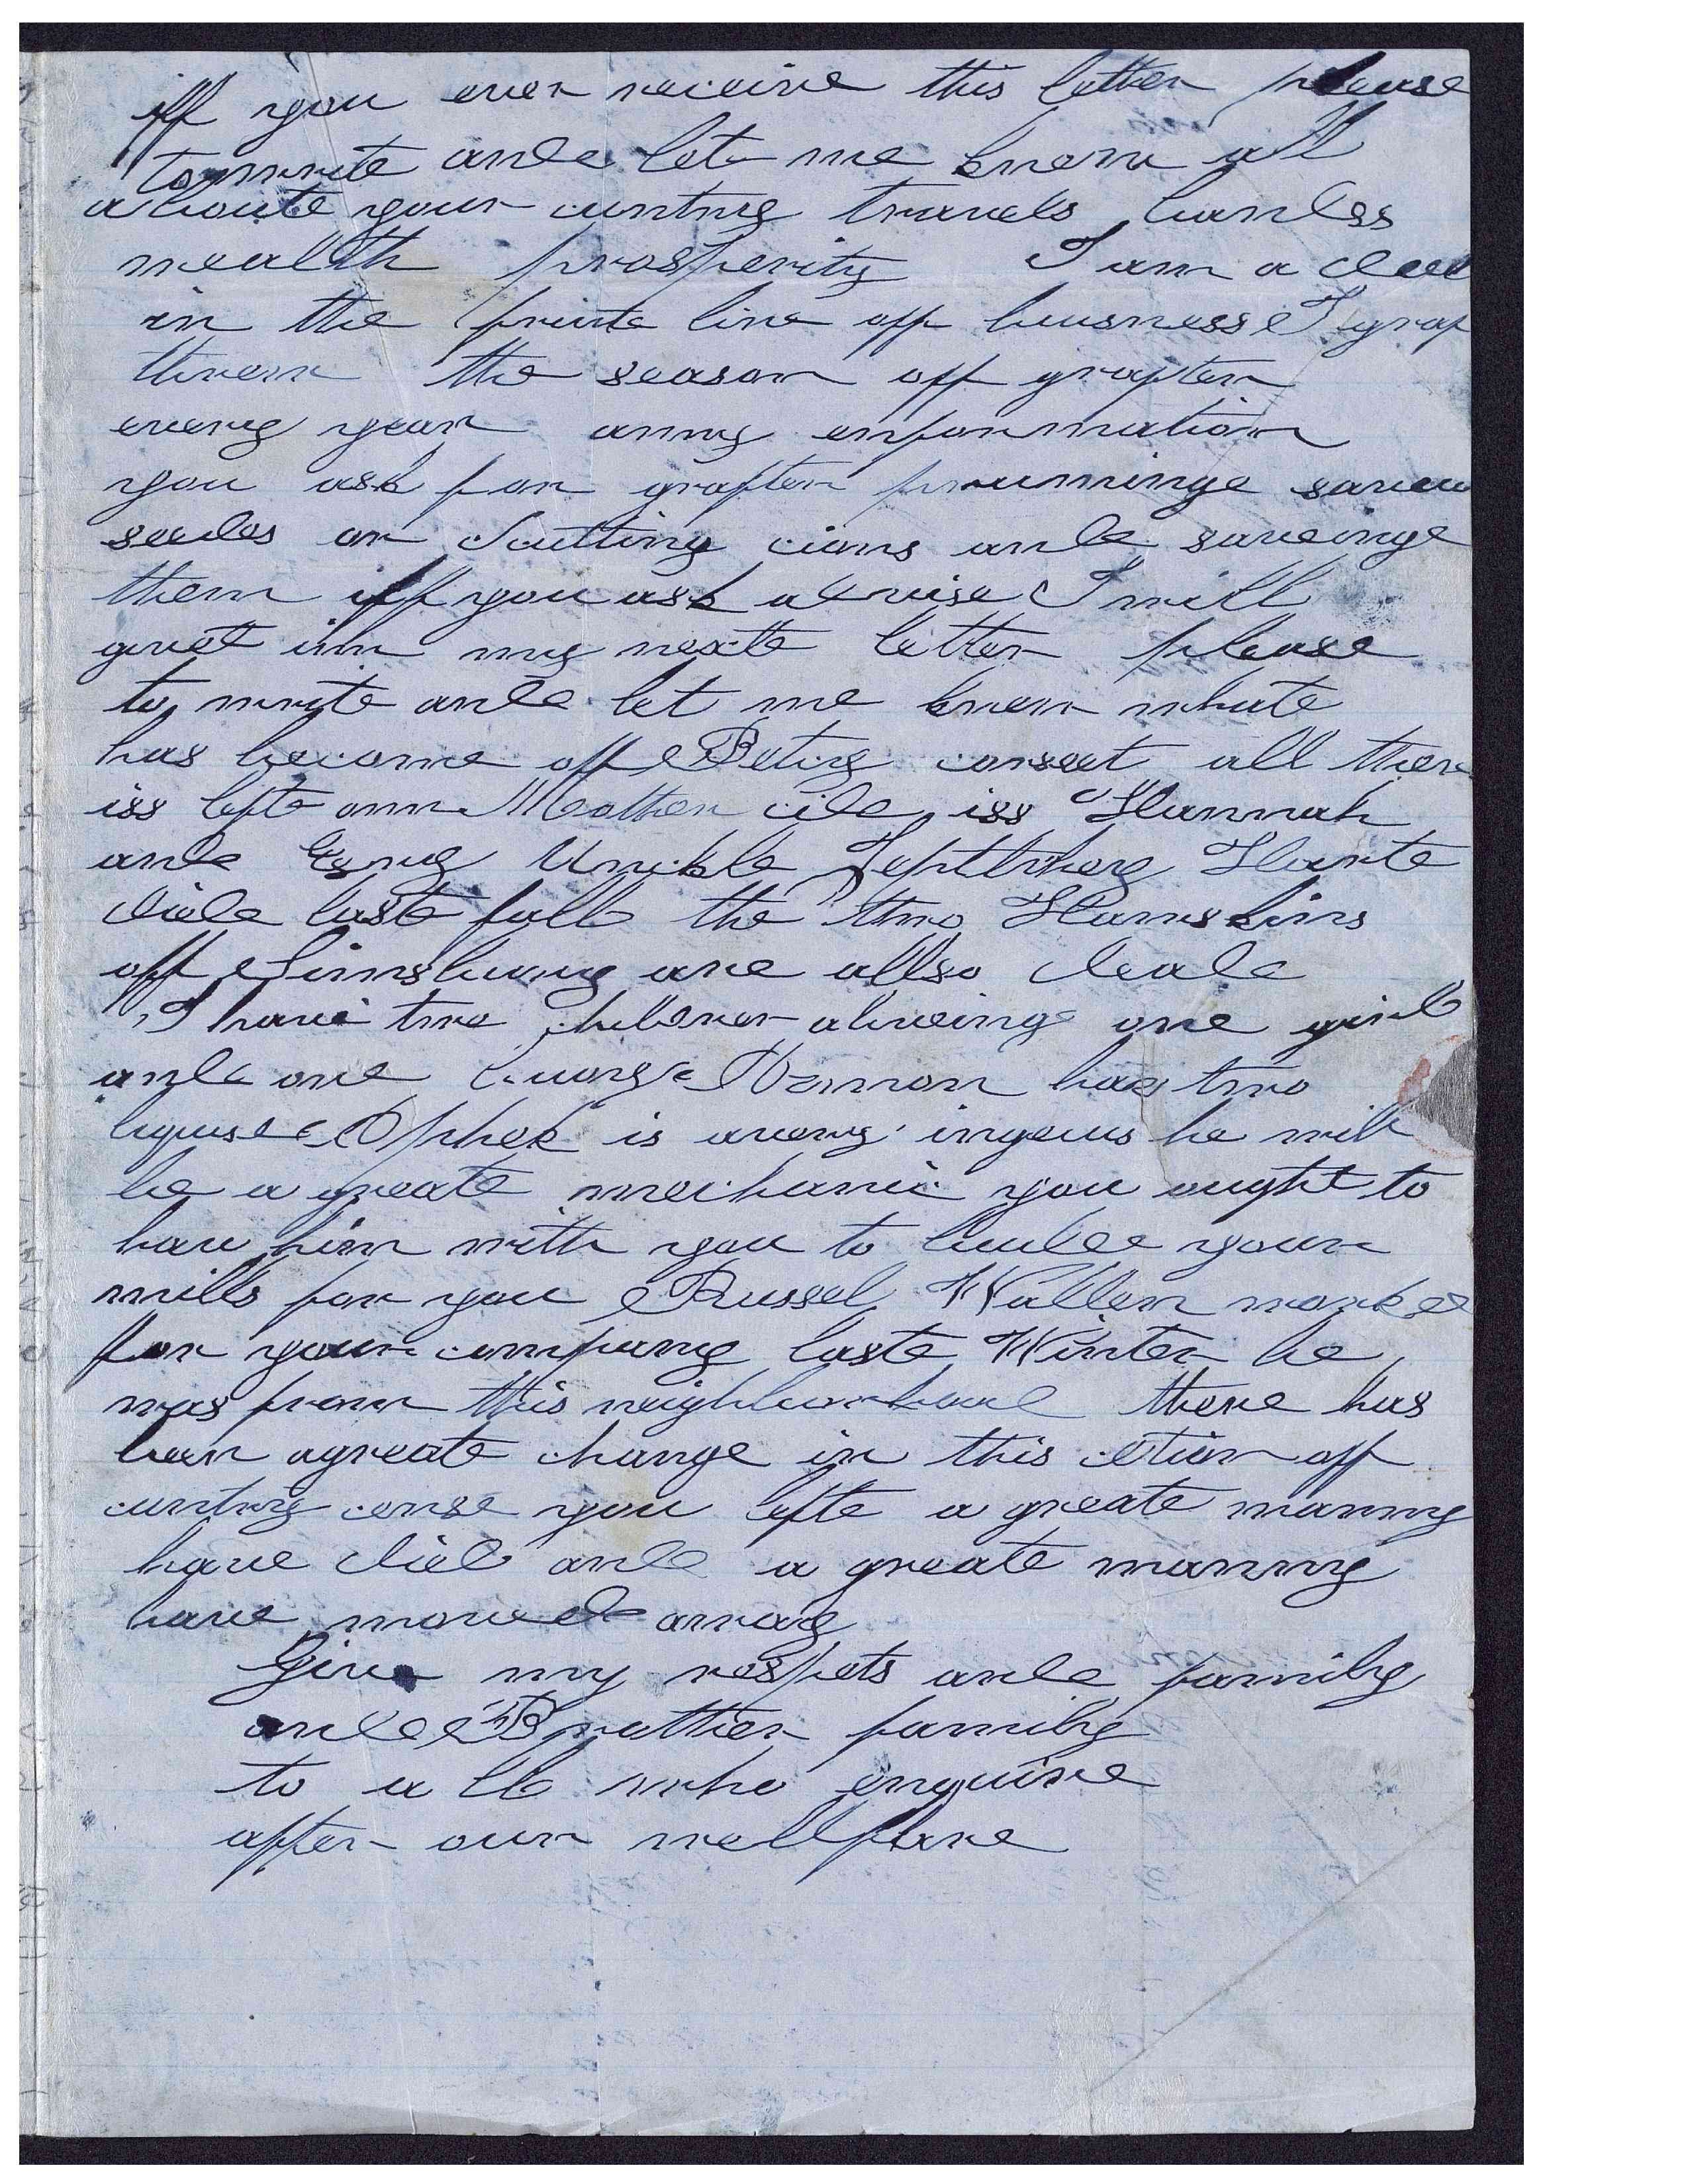 iff you ever receive this letter please
to write and let me know all
aboute your cuntry travels lands
wealth prosperity I am a deal
in the fruite line off buisness I graf
threw the season off graften
every year anny enformation
you ask for graften prunninge saveu
seades or cutting cions and saveinge
them iff you ask advise I will
givet inn my nexte letter please
to write and let me know whate
has become off Betsy all ther
iss lefte onn Mother side iss Hannah
and Esny Unckle Jepthhey Hunte
died laste fall the two Hawskins
off Simsbury are allso deade
I have two children aliveinge one girl
and one Vernon has two
Opher is avery ingeus he will
be a greate mechanic you ought to
hav him with you to builde your
mills for you Russel Wallen worked
for your company laste Winter he
was from this neighburhood there has
ben agreate change in this ction off
cuntry cense you lefte a greate manny
have died and a greate manny
have moved away
Give my respets and family
and Brother family
to all who enquire
after our wellfare